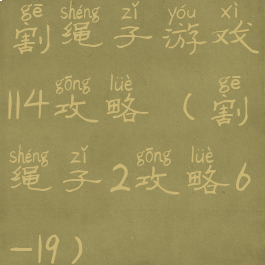 gē shéng zǐ yóu xì
割绳子游戏
gōng lüè gē
114攻略（割
shéng zǐ gōng lüè
绳子2攻略6
一19）